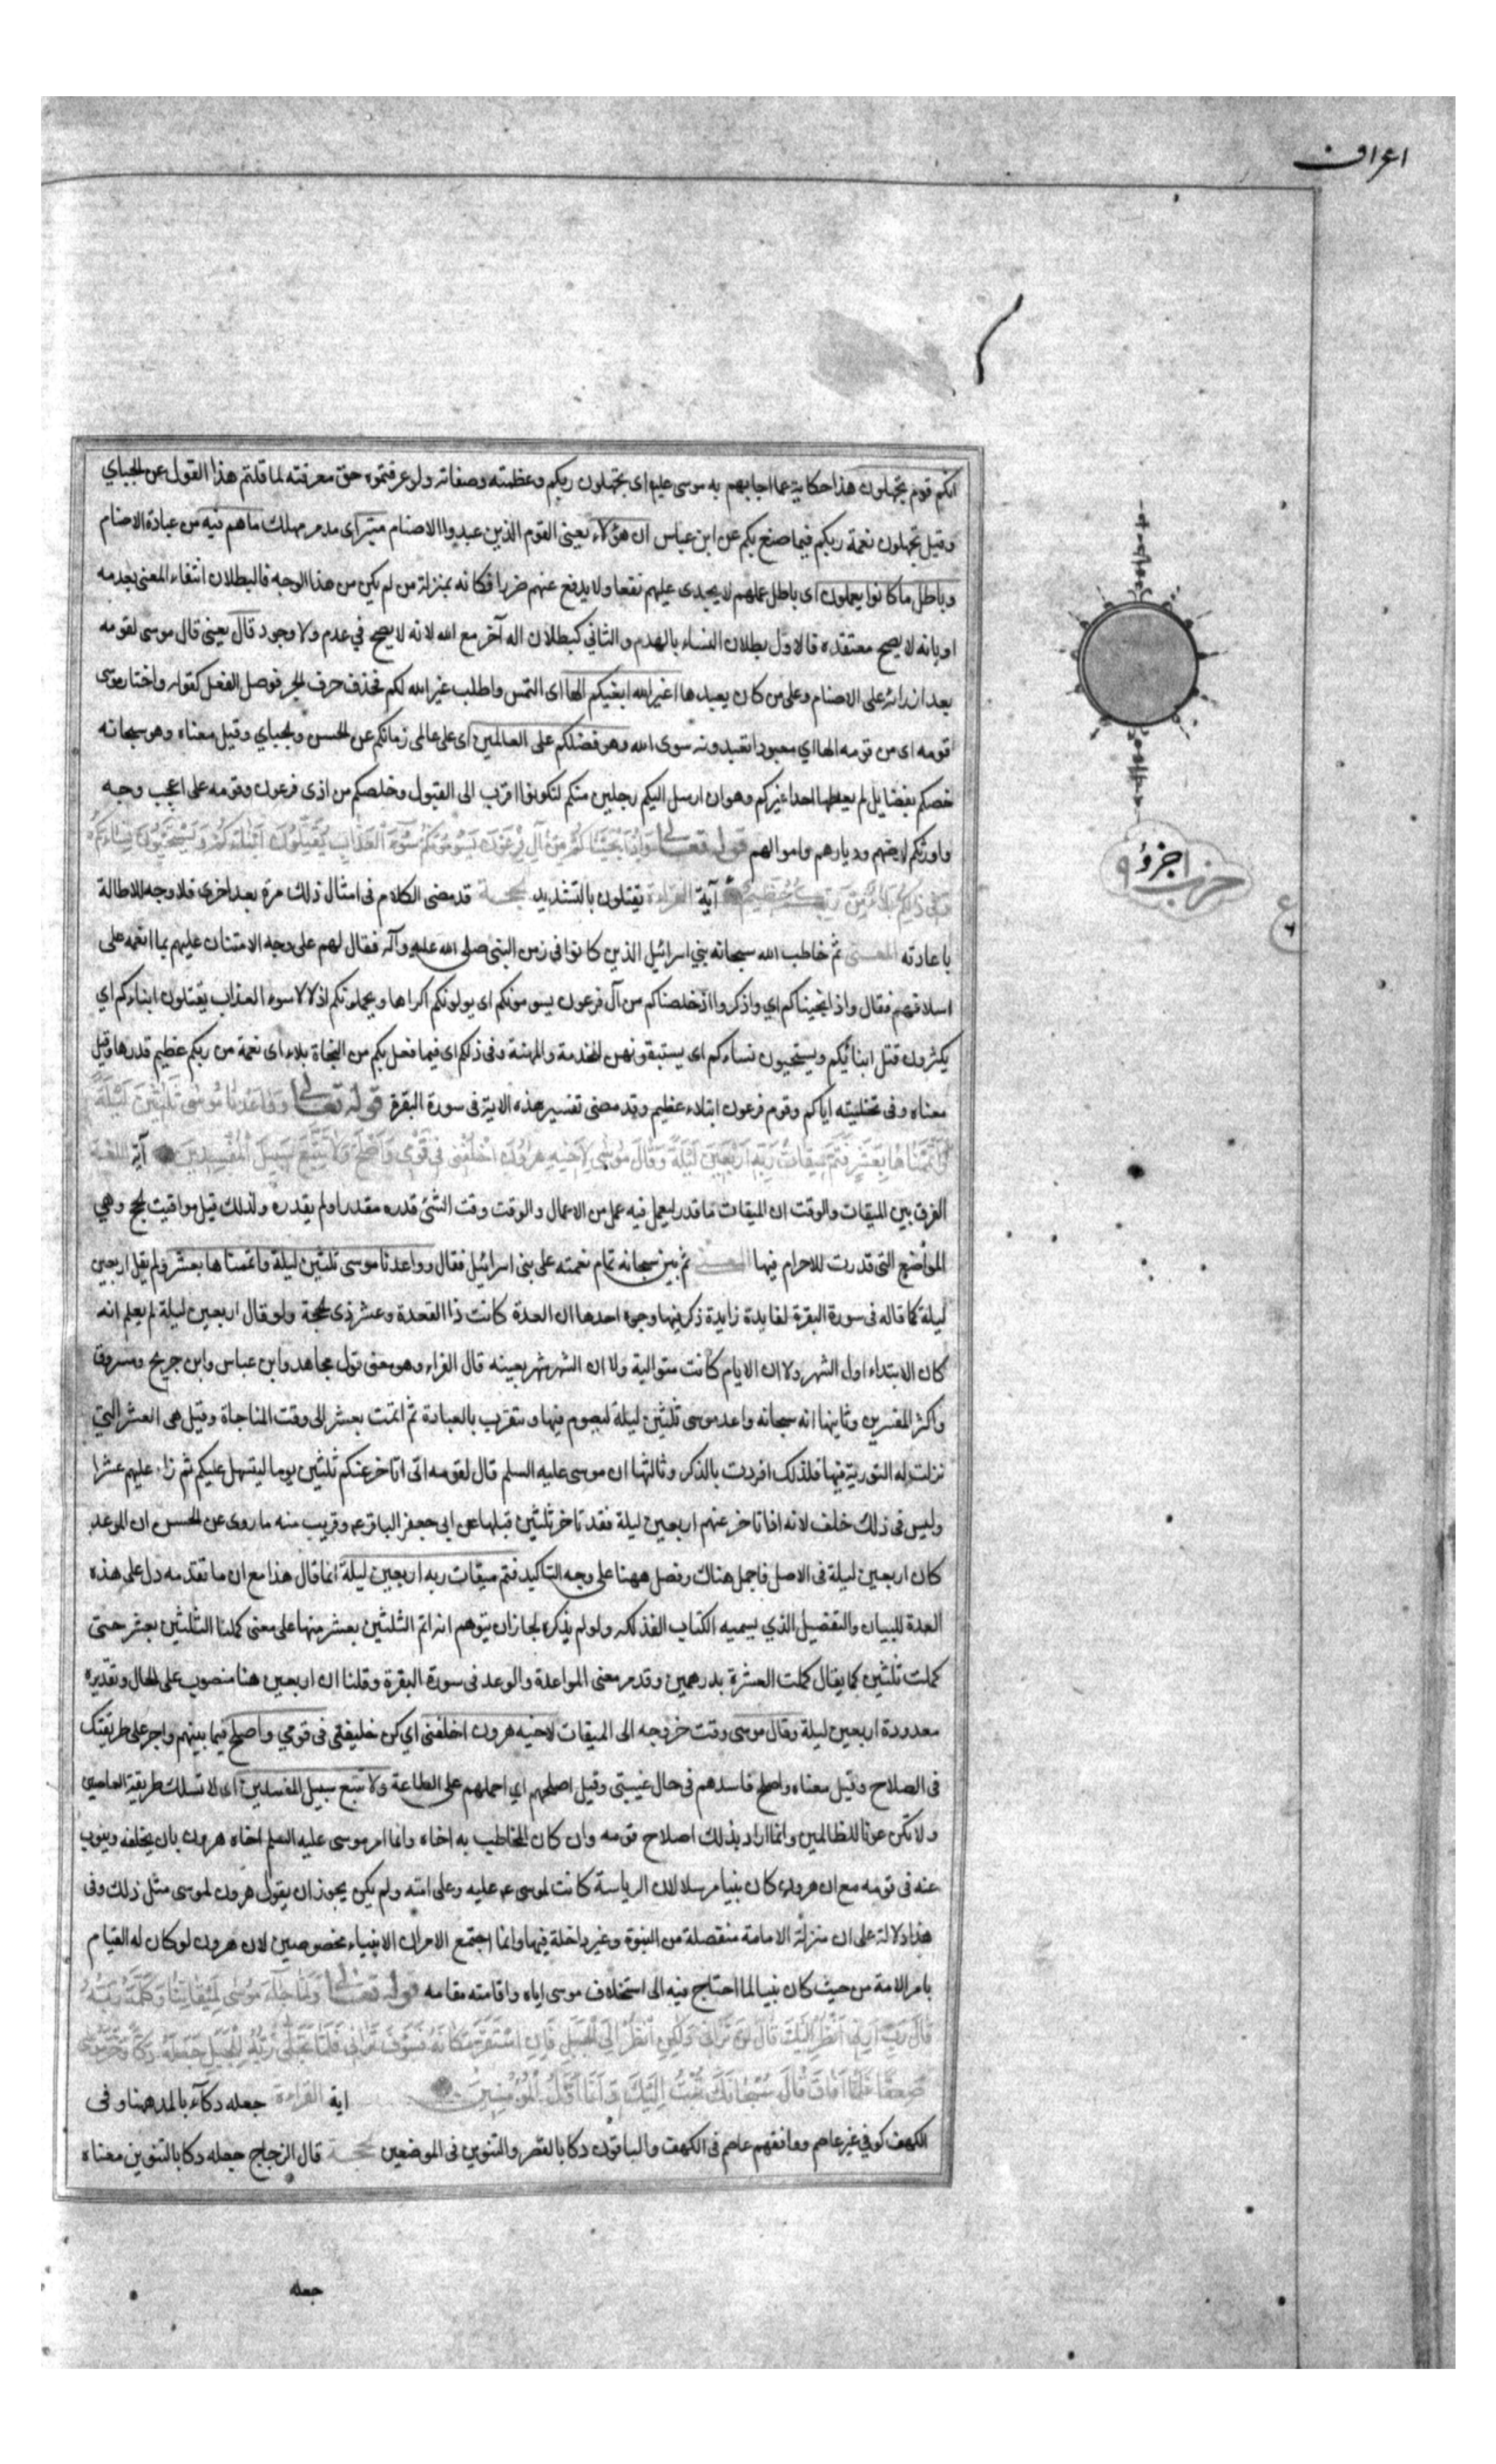 اعراف
انكم قوم تجهلون هذا حكاية عما اجابهم به موسى عليه اى تجهلون ربكم وعظمته وصفاته ولو عرفتموه حق معرفته لما قلتم هذا القول عن الجباي
وقيل تجهلون نعمة ربكم فيما صنع بكم عن ابن عباس ان هؤلاء يعنى القوم الذين عبدوا الاصنام متبر اى مدمر مهلك ما هم فيه من عبادة الاصنام
وباطل ما كانوا يعملون اى باطل عملهم لا يجدى عليهم نفعا ولا يدفع عنهم ضررا فكانه بمنزلة من لم يكن من هذا الوجه فالبطلان انتفاء المعنى بعدمه
او بانه لا يصح معتقده فالاول بطلان البناء بالهدم والثاني كبطلان اله آخر مع الله لانه لا يصح في عدم ولا وجود قال يعنى قال موسى لقومه
بعد ان ازرى على الاصنام وعلى من كان يعبدها اغير الله ابغيكم الها اى التمس واطلب غير الله لكم فحذف حرف الجر فوصل الفعل كقوله واختار موسى
قومه اى من قومه الها اي معبودا تعبدونه سوى الله وهو فضلكم على العالمين اى على عالمى زمانكم عن الحسن والجباي وقيل معناه وهو سبحانه
خصكم بفضايل لم يعطها احدا غيركم وهو ان ارسل اليكم رجلين منكم لتكونوا اقرب الى القبول وخلصكم من اذى فرعون وقومه على اعجب وجه
واورثكم ارضهم وديارهم واموالهم قوله تعالى وَاِذْ اَنْجَيْنَاكُمْ مِنْ آلِ فِرْعَوْنَ يَسُومُونَكُمْ سُوءَ الْعَذَابِ يُقَتِّلُونَ اَبْنَاءَكُمْ وَيَسْتَحْيُونَ نِسَاءَكُمْ
وَفِى ذٰلِكُمْ بَلَاءٌ مِنْ رَبِّكُمْ عَظِيمٌ آية القراءة يقتلون بالتشديد الحجة قد مضى الكلام فى امثال ذلك مرة بعد اخرى فلا وجه للاطالة
باعادته المعنى ثم خاطب الله سبحانه بني اسرائيل الذين كانوا في زمن النبى صلى الله عليه وآله فقال لهم على وجه الامتنان عليهم بما انعمه على
اسلافهم فقال واذ انجيناكم اي واذكروا اذ خلصناكم من آل فرعون يسومونكم اى يولونكم اكراها ويحملونكم اذلالا سوء العذاب يقتلون ابناءكم اي
يكثرون قتل ابنائكم ويستحيون نساءكم اى يستبقونهن للخدمة والمهنة وفى ذلكم اى فيما فعل بكم من النجاة بلاء اى نعمة من ربكم عظيم قدرها وقيل
معناه وفى تخليته اياكم وقوم فرعون ابتلاء عظيم وقد مضى تفسير هذه الاية فى سورة البقرة قوله تعالى وَوَاعَدْنَا مُوسٰى ثَلٰثِينَ لَيْلَةً
وَاَتْمَمْنَاهَا بِعَشْرٍ فَتَمَّ مِيقَاتُ رَبِّهِ اَرْبَعِينَ لَيْلَةً وَقَالَ مُوسٰى لِاَخِيهِ هٰرُونَ اخْلُفْنِى فِى قَوْمِى وَاَصْلِحْ وَلَا تَتَّبِعْ سَبِيلَ الْمُفْسِدِينَ آية اللغة
الفرق بين الميقات والوقت ان الميقات ما قدر ليعمل فيه عمل من الاعمال والوقت وقت الشئ قدره مقدر او لم يقدره ولذلك قيل مواقيت الحج وهي
المواضع التى قدرت للاحرام فيها المعنى ثم بين سبحانه تمام نعمته على بنى اسرائيل فقال وواعدنا موسى ثلثين ليلة واتممناها بعشر ولم يقل اربعين
ليلة كما قاله فى سورة البقرة لفايدة زايدة ذكر فيها وجوه احدها ان العدة كانت ذا القعدة وعشر ذى الحجة ولو قال اربعين ليلة لم يعلم انه
كان الابتداء اول الشهر ولا ان الايام كانت متوالية ولا ان الشهر شهر بعينه قال الفراء وهو معنى قول مجاهد وابن عباس وابن جريج ومسروق
واكثر المفسرين وثانيها انه سبحانه واعد موسى ثلثين ليلة ليصوم فيها ويتقرب بالعبادة ثم اتمت بعشر الى وقت المناجاة وقيل هى العشر التى
نزلت له التورية فيها فلذلك افردت بالذكر وثالثها ان موسى عليه السلم قال لقومه انى اتاخر عنكم ثلثين يوما ليتسهل عليكم ثم زاد عليهم عشرا
وليس فى ذلك خلف لانه اذا تاخر عنهم اربعين ليلة فقد تاخر ثلثين قبلها عن ابى جعفر الباقر ع وقريب منه ما روى عن الحسن ان الموعد
كان اربعين ليلة فى الاصل فاجمل هناك وفصل ههنا على وجه التاكيد فتم ميقات ربه اربعين ليلة انما قال هذا مع ان ما تقدمه دل على هذه
العدة للبيان والتفصيل الذي يسميه الكتاب الفذلكه ولو لم يذكره لجاز ان يتوهم انه اتم الثلثين بعشر منها على معنى كملنا الثلثين بعشر حتى
كملت ثلثين كما يقال كملت العشرة بدرهمين وقد مر معنى المواعدة والوعد فى سورة البقرة وقلنا ان اربعين هنا منصوب على الحال وتقديره
معدودة اربعين ليلة وقال موسى وقت خروجه الى الميقات لاخيه هرون اخلفنى اي كن خليفتى فى قومي واصلح فيما بينهم واجر على طريقتك
فى الصلاح وقيل معناه واصلح فاسدهم فى حال غيبتى وقيل اصلحهم اي احملهم على الطاعة ولا تتبع سبيل المفسدين اى لا تسلك طريقة العاصين
ولا تكن عونا للظالمين وانما اراد بذلك اصلاح قومه وان كان المخاطب به اخاه وانما امر موسى عليه السلم اخاه هرون بان يخلفه وينوب
عنه فى قومه مع ان هرون كان نبيا مرسلا لان الرياسة كانت لموسى ع عليه وعلى امته ولم يكن يجوز ان يقول هرون لموسى مثل ذلك وفى
هذا دلالة على ان منزلة الامامة منفصلة من النبوة وغير داخلة فيها وانما اجتمع الامران لانبياء مخصوصين لان هرون لو كان له القيام
بامر الامة من حيث كان نبيا لما احتاج فيه الى استخلاف موسى اياه واقامته مقامه قوله تعالى وَلَمَّا جَاءَ مُوسٰى لِمِيقَاتِنَا وَكَلَّمَهُ رَبُّهُ
قَالَ رَبِّ اَرِنِى اَنْظُرْ اِلَيْكَ قَالَ لَنْ تَرَانِى وَلٰكِنِ انْظُرْ اِلَى الْجَبَلِ فَاِنِ اسْتَقَرَّ مَكَانَهُ فَسَوْفَ تَرَانِى فَلَمَّا تَجَلّٰى رَبُّهُ لِلْجَبَلِ جَعَلَهُ دَكًّا وَخَرَّ مُوسٰى
صَعِقًا فَلَمَّا اَفَاقَ قَالَ سُبْحَانَكَ تُبْتُ اِلَيْكَ وَاَنَا اَوَّلُ الْمُؤْمِنِينَ اية القراءة جعله دكآء بالمد ههنا وفى
الكهف كوفي غير عاصم ووافقهم عاصم فى الكهف والباقون دكا بالقصر والتنوين فى الموضعين الحجة قال الزجاج جعله دكا بالتنوين معناه
جعله
حزب ا جزؤ ٩